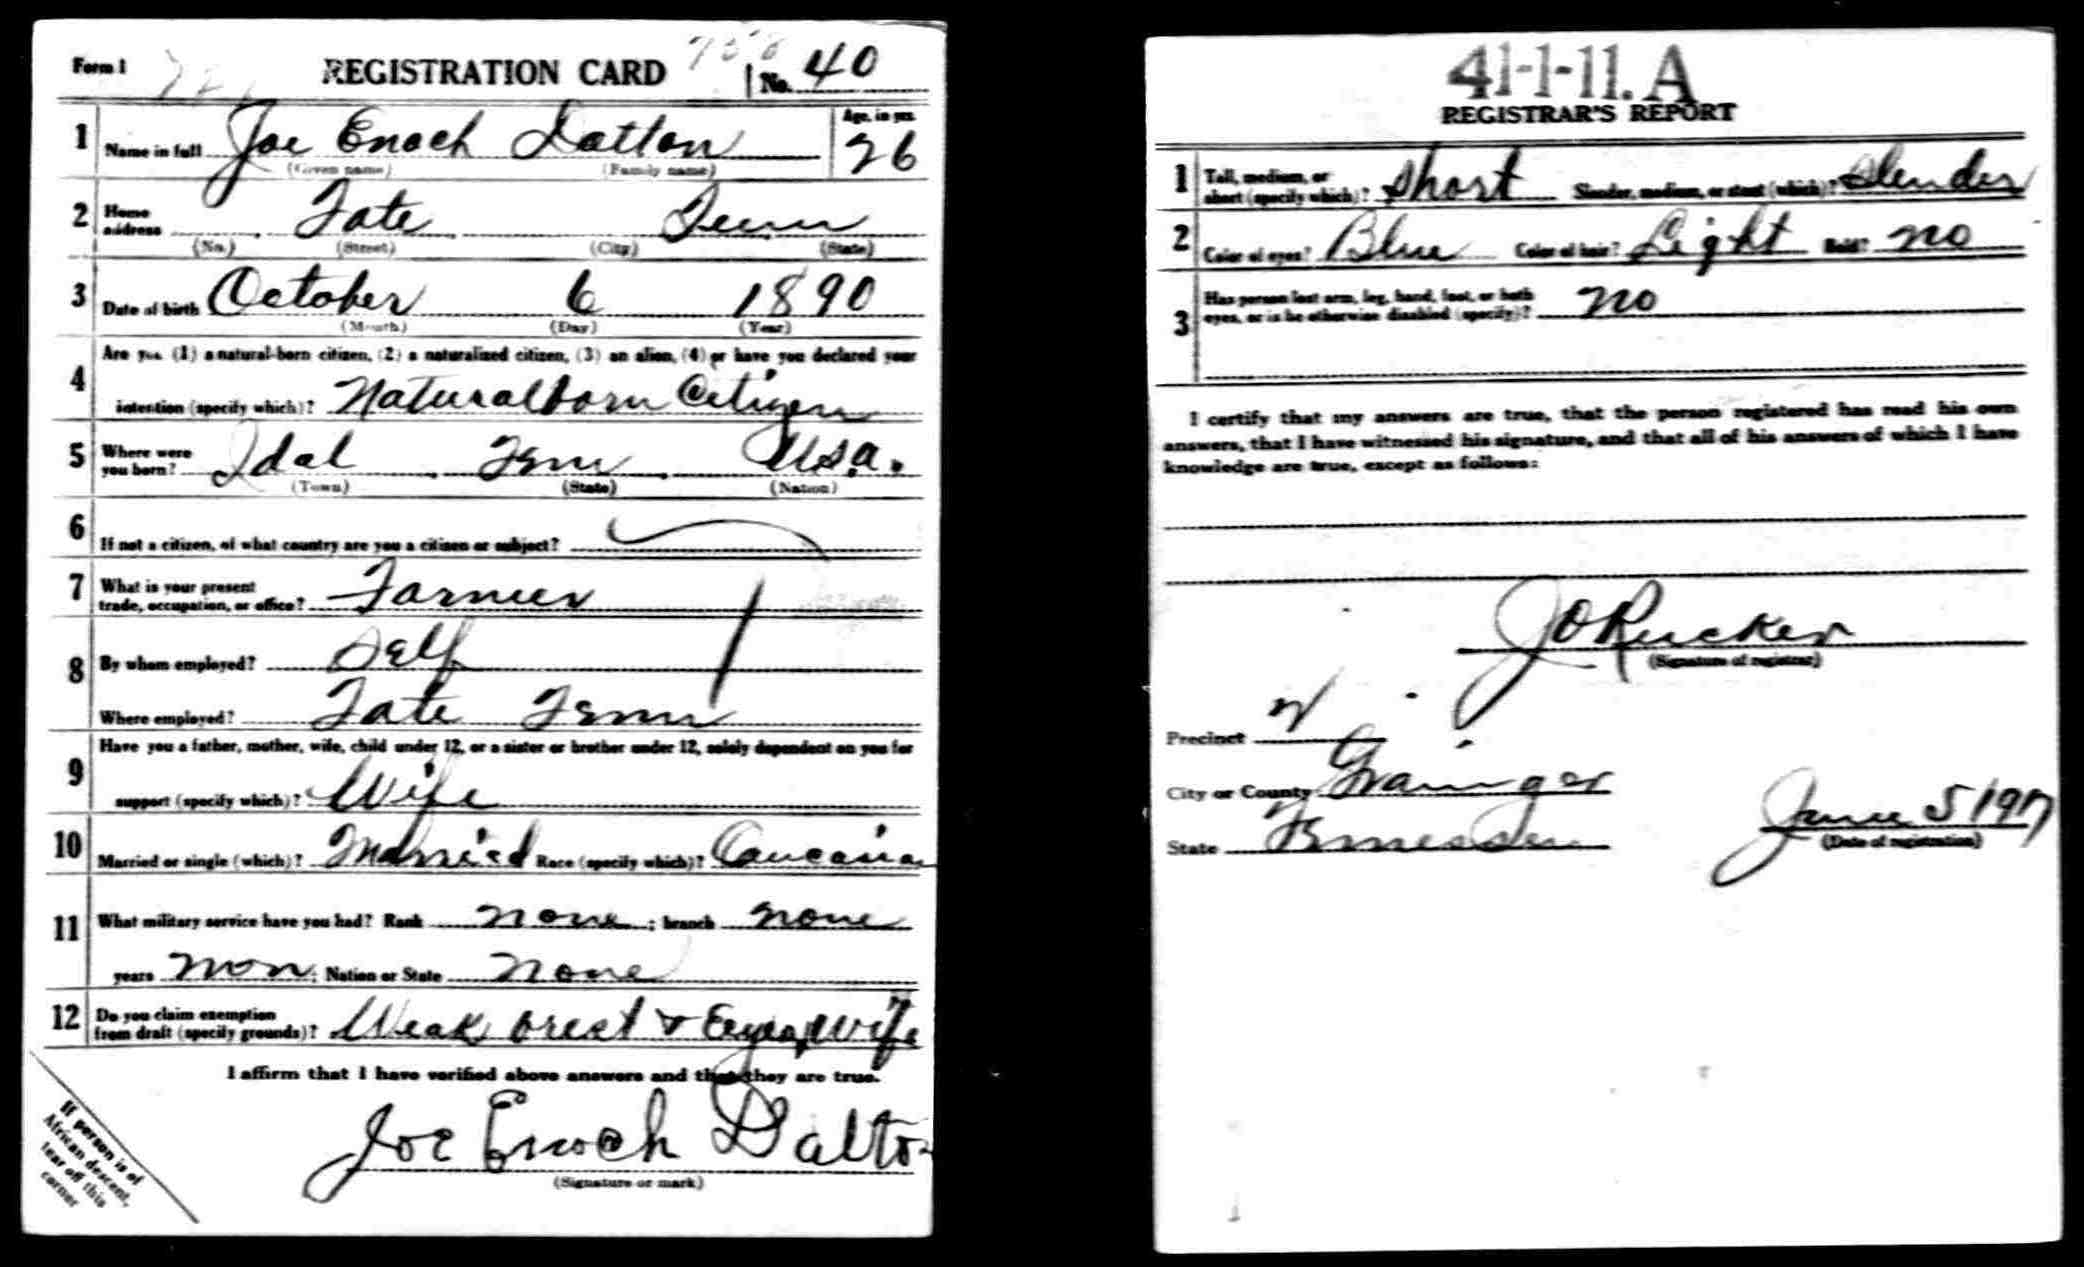 Form 1 REGISTRATION CARD 758 No. 40
1 Name in full Joe Enoch Dalton Age, in yrs. 26
(Given name) (Family name)
2 Home address Tate Tenn
(No.) (Street) (City) (State)
3 Date of birth October 6 1890
(Month) (Day) (Year)
4 Are you (1) a natural-born citizen, (2) a naturalized citizen, (3) an alien, (4) or have you declared your
intention (specify which)? Naturalborn Citizen
5 Where were you born? Idal Tenn U.S.a.
(Town) (State) (Nation)
6 If not a citizen, of what country are you a citizen or subject?
7 What is your present
trade, occupation, or office? Farmer
8 By whom employed? Self
Where employed? Tate Tenn
9 Have you a father, mother, wife, child under 12, or a sister or brother under 12, solely dependent on you for
support (specify which)? Wife
10 Married or single (which)? Married Race (specify which)? Caucasian
11 What military service have you had? Rank none ; branch none
years non ; Nation or State None
12 Do you claim exemption
from draft (specify grounds)? Weak brest & Eyes, wife
I affirm that I have verified above answers and that they are true.
Joe Enoch Dalton
(Signature or mark)
If person is of
African descent,
tear off this
corner
41-1-11. A
REGISTRAR'S REPORT
1 Tall, medium, or
short (specify which)? Short Slender, medium, or stout (which)? Slender
2 Color of eyes? Blue Color of hair? Light Bald? no
3 Has person lost arm, leg, hand, foot, or both
eyes, or is he otherwise disabled (specify)? no
I certify that my answers are true, that the person registered has read his own
answers, that I have witnessed his signature, and that all of his answers of which I have
knowledge are true, except as follows:
J O Rucker
(Signature of registrar)
Precinct
City or County Grainger
State Tennessee June 5 1917
(Date of registration)